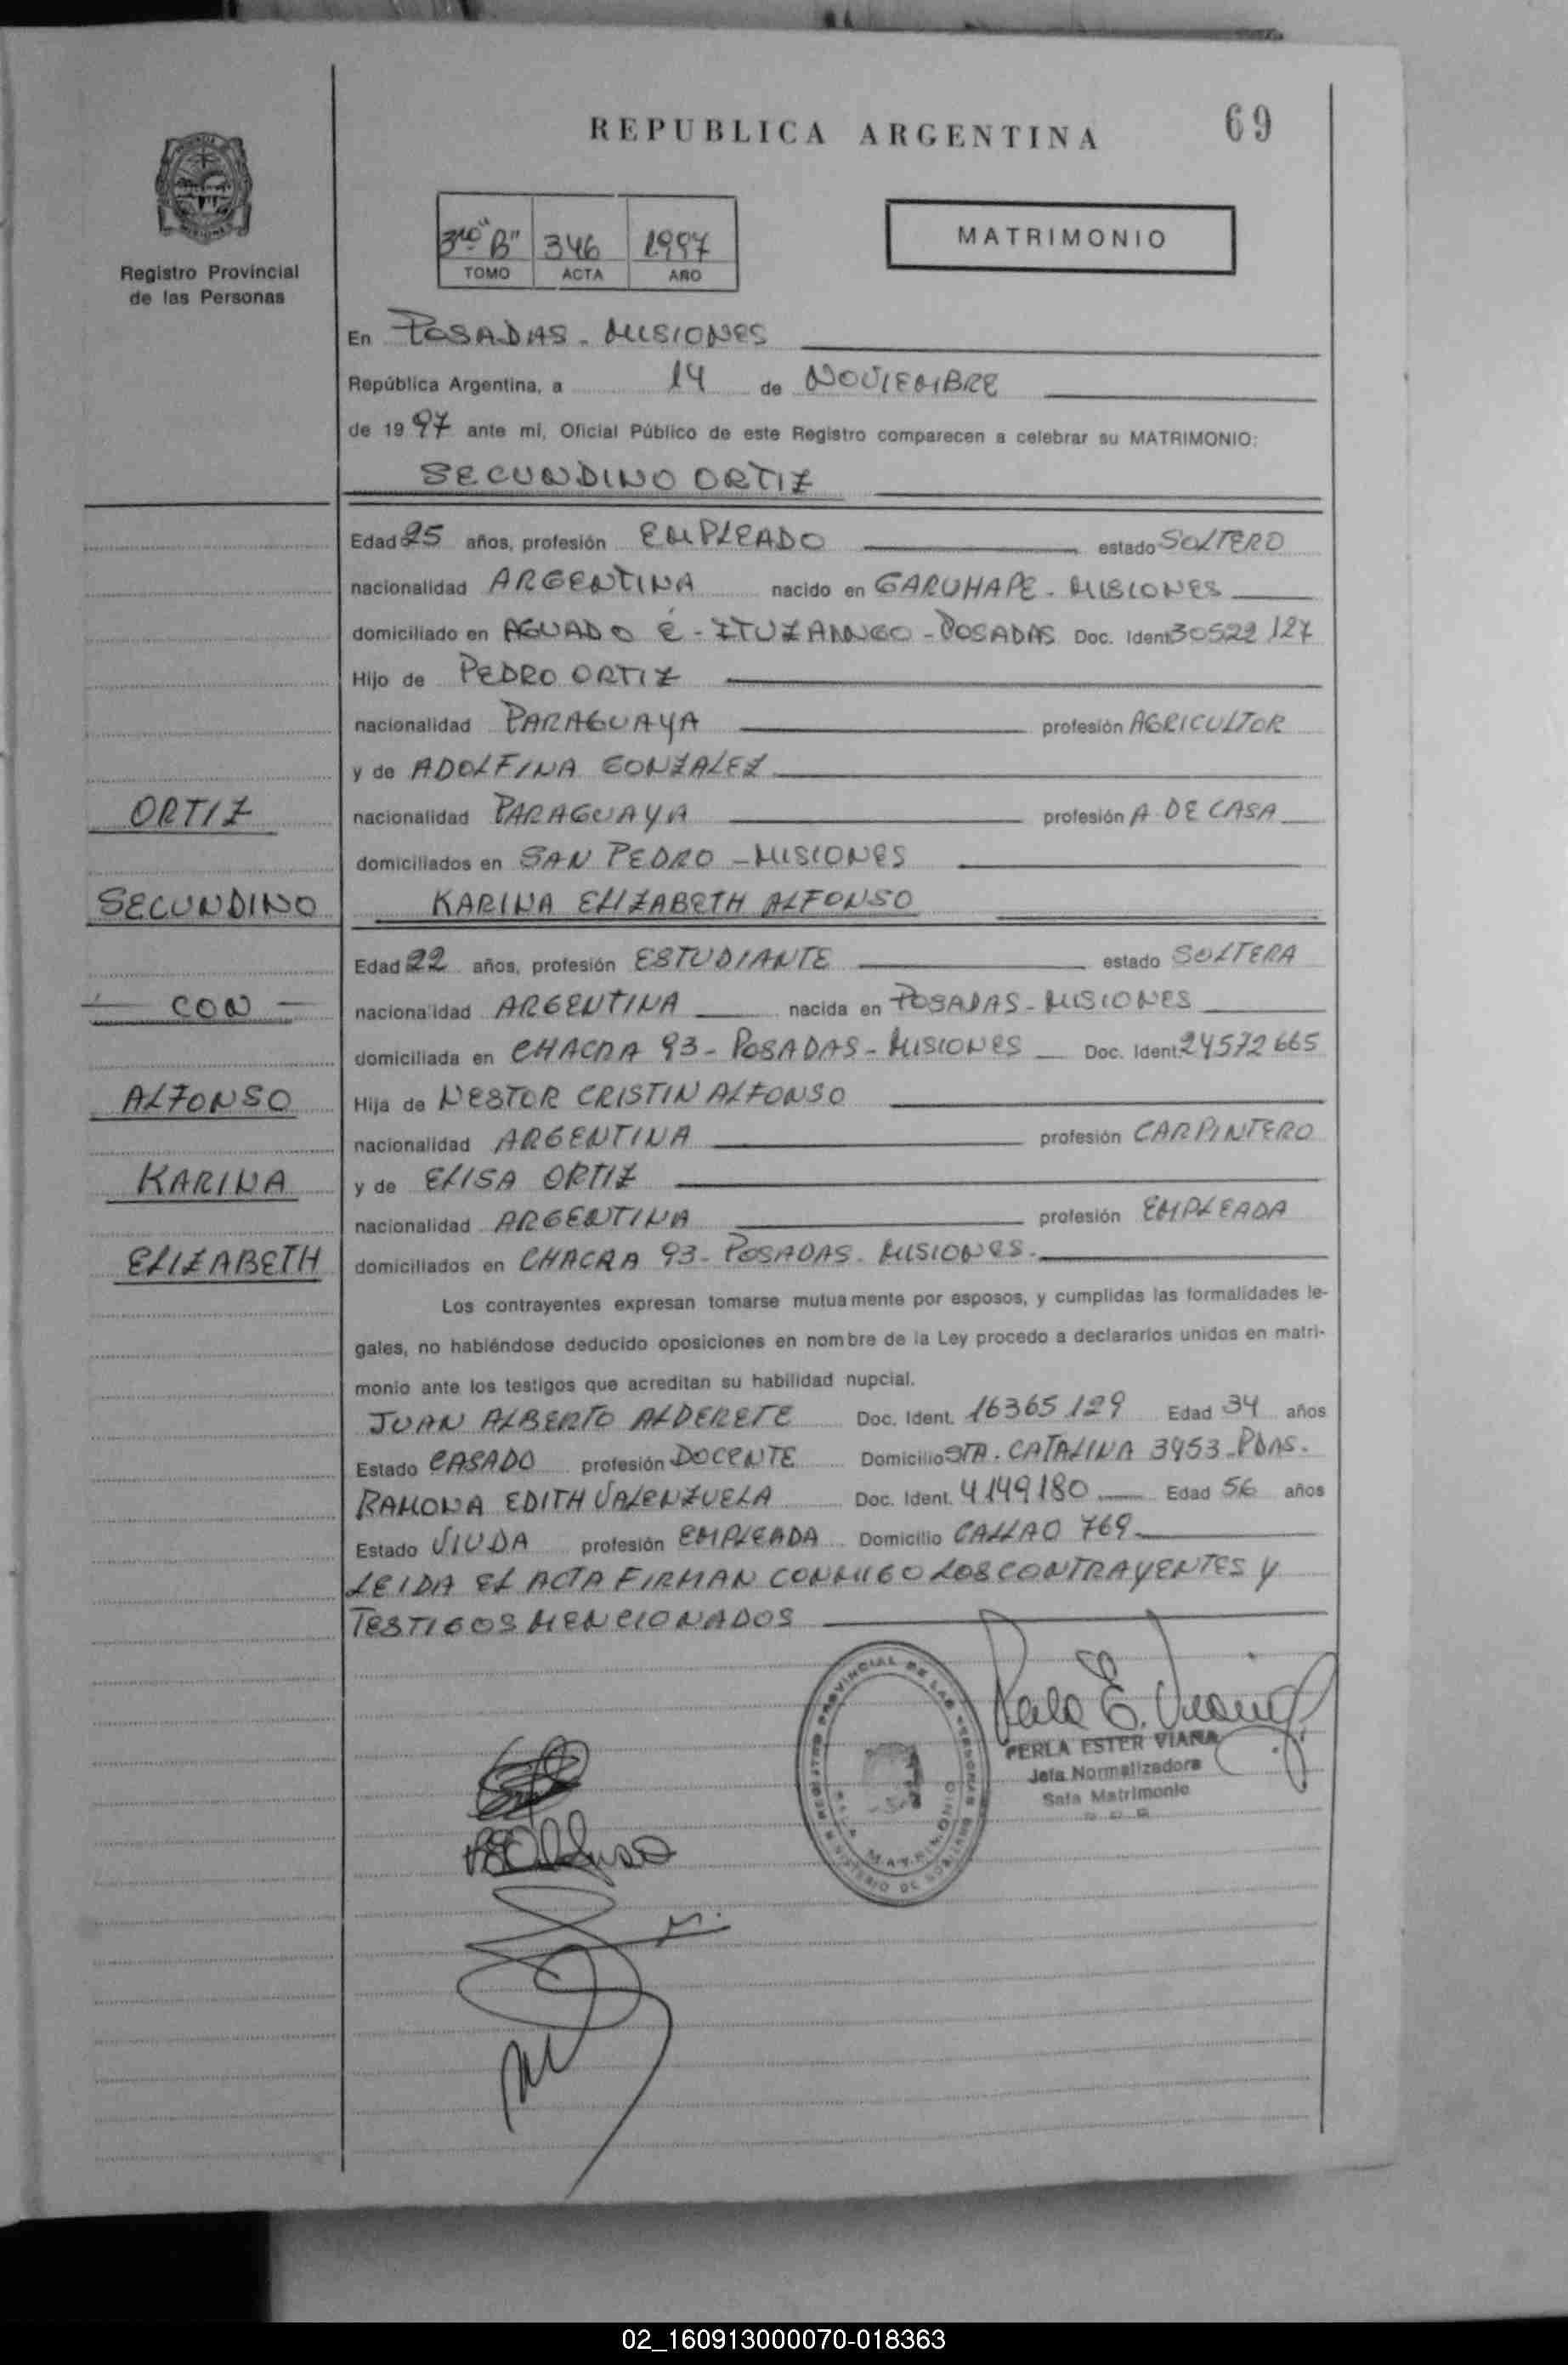 REPUBLICA ARGENTINA
69
Registro Provincial
de las Personas
3ro "B" 346 1997
TOMO ACTA AÑO
MATRIMONIO
En POSADAS - MISIONES
República Argentina, a 14 de NOVIEMBRE
de 1997 ante mi, Oficial Público de este Registro comparecen a celebrar su MATRIMONIO:
SECUNDINO ORTIZ
Edad 25 años, profesión EMPLEADO estado SOLTERO
nacionalidad ARGENTINA nacido en GARUHAPE - MISIONES
domiciliado en AGUADO E - ITUZAINGO - POSADAS Doc. Ident. 30522127
Hijo de PEDRO ORTIZ
nacionalidad PARAGUAYA profesión AGRICULTOR
y de ADOLFINA GONZALEZ
nacionalidad PARAGUAYA profesión A. DE CASA
domiciliados en SAN PEDRO - MISIONES
KARINA ELIZABETH ALFONSO
Edad 22 años, profesión ESTUDIANTE estado SOLTERA
nacionalidad ARGENTINA nacida en POSADAS - MISIONES
domiciliada en CHACRA 93 - POSADAS - MISIONES Doc. Ident. 24572665
Hija de NESTOR CRISTIN ALFONSO
nacionalidad ARGENTINA profesión CARPINTERO
y de ELISA ORTIZ
nacionalidad ARGENTINA profesión EMPLEADA
domiciliados en CHACRA 93 - POSADAS - MISIONES.
ORTIZ
SECUNDINO
- CON -
ALFONSO
KARINA
ELIZABETH
Los contrayentes expresan tomarse mutuamente por esposos, y cumplidas las formalidades le-
gales, no habiéndose deducido oposiciones en nombre de la Ley procedo a declararlos unidos en matri-
monio ante los testigos que acreditan su habilidad nupcial.
JUAN ALBERTO ALDERETE Doc. Ident. 16365129 Edad 34 años
Estado CASADO profesión DOCENTE Domicilio STA. CATALINA 3953 - PDAS.
RAMONA EDITH VALENZUELA Doc. Ident. 4149180 Edad 56 años
Estado VIUDA profesión EMPLEADA Domicilio CALLAO 769
LEIDA EL ACTA FIRMAN CONMIGO LOS CONTRAYENTES Y
TESTIGOS MENCIONADOS
PERLA ESTER VIANA
Jefa Normalizadora
Sala Matrimonio
02_160913000070-018363